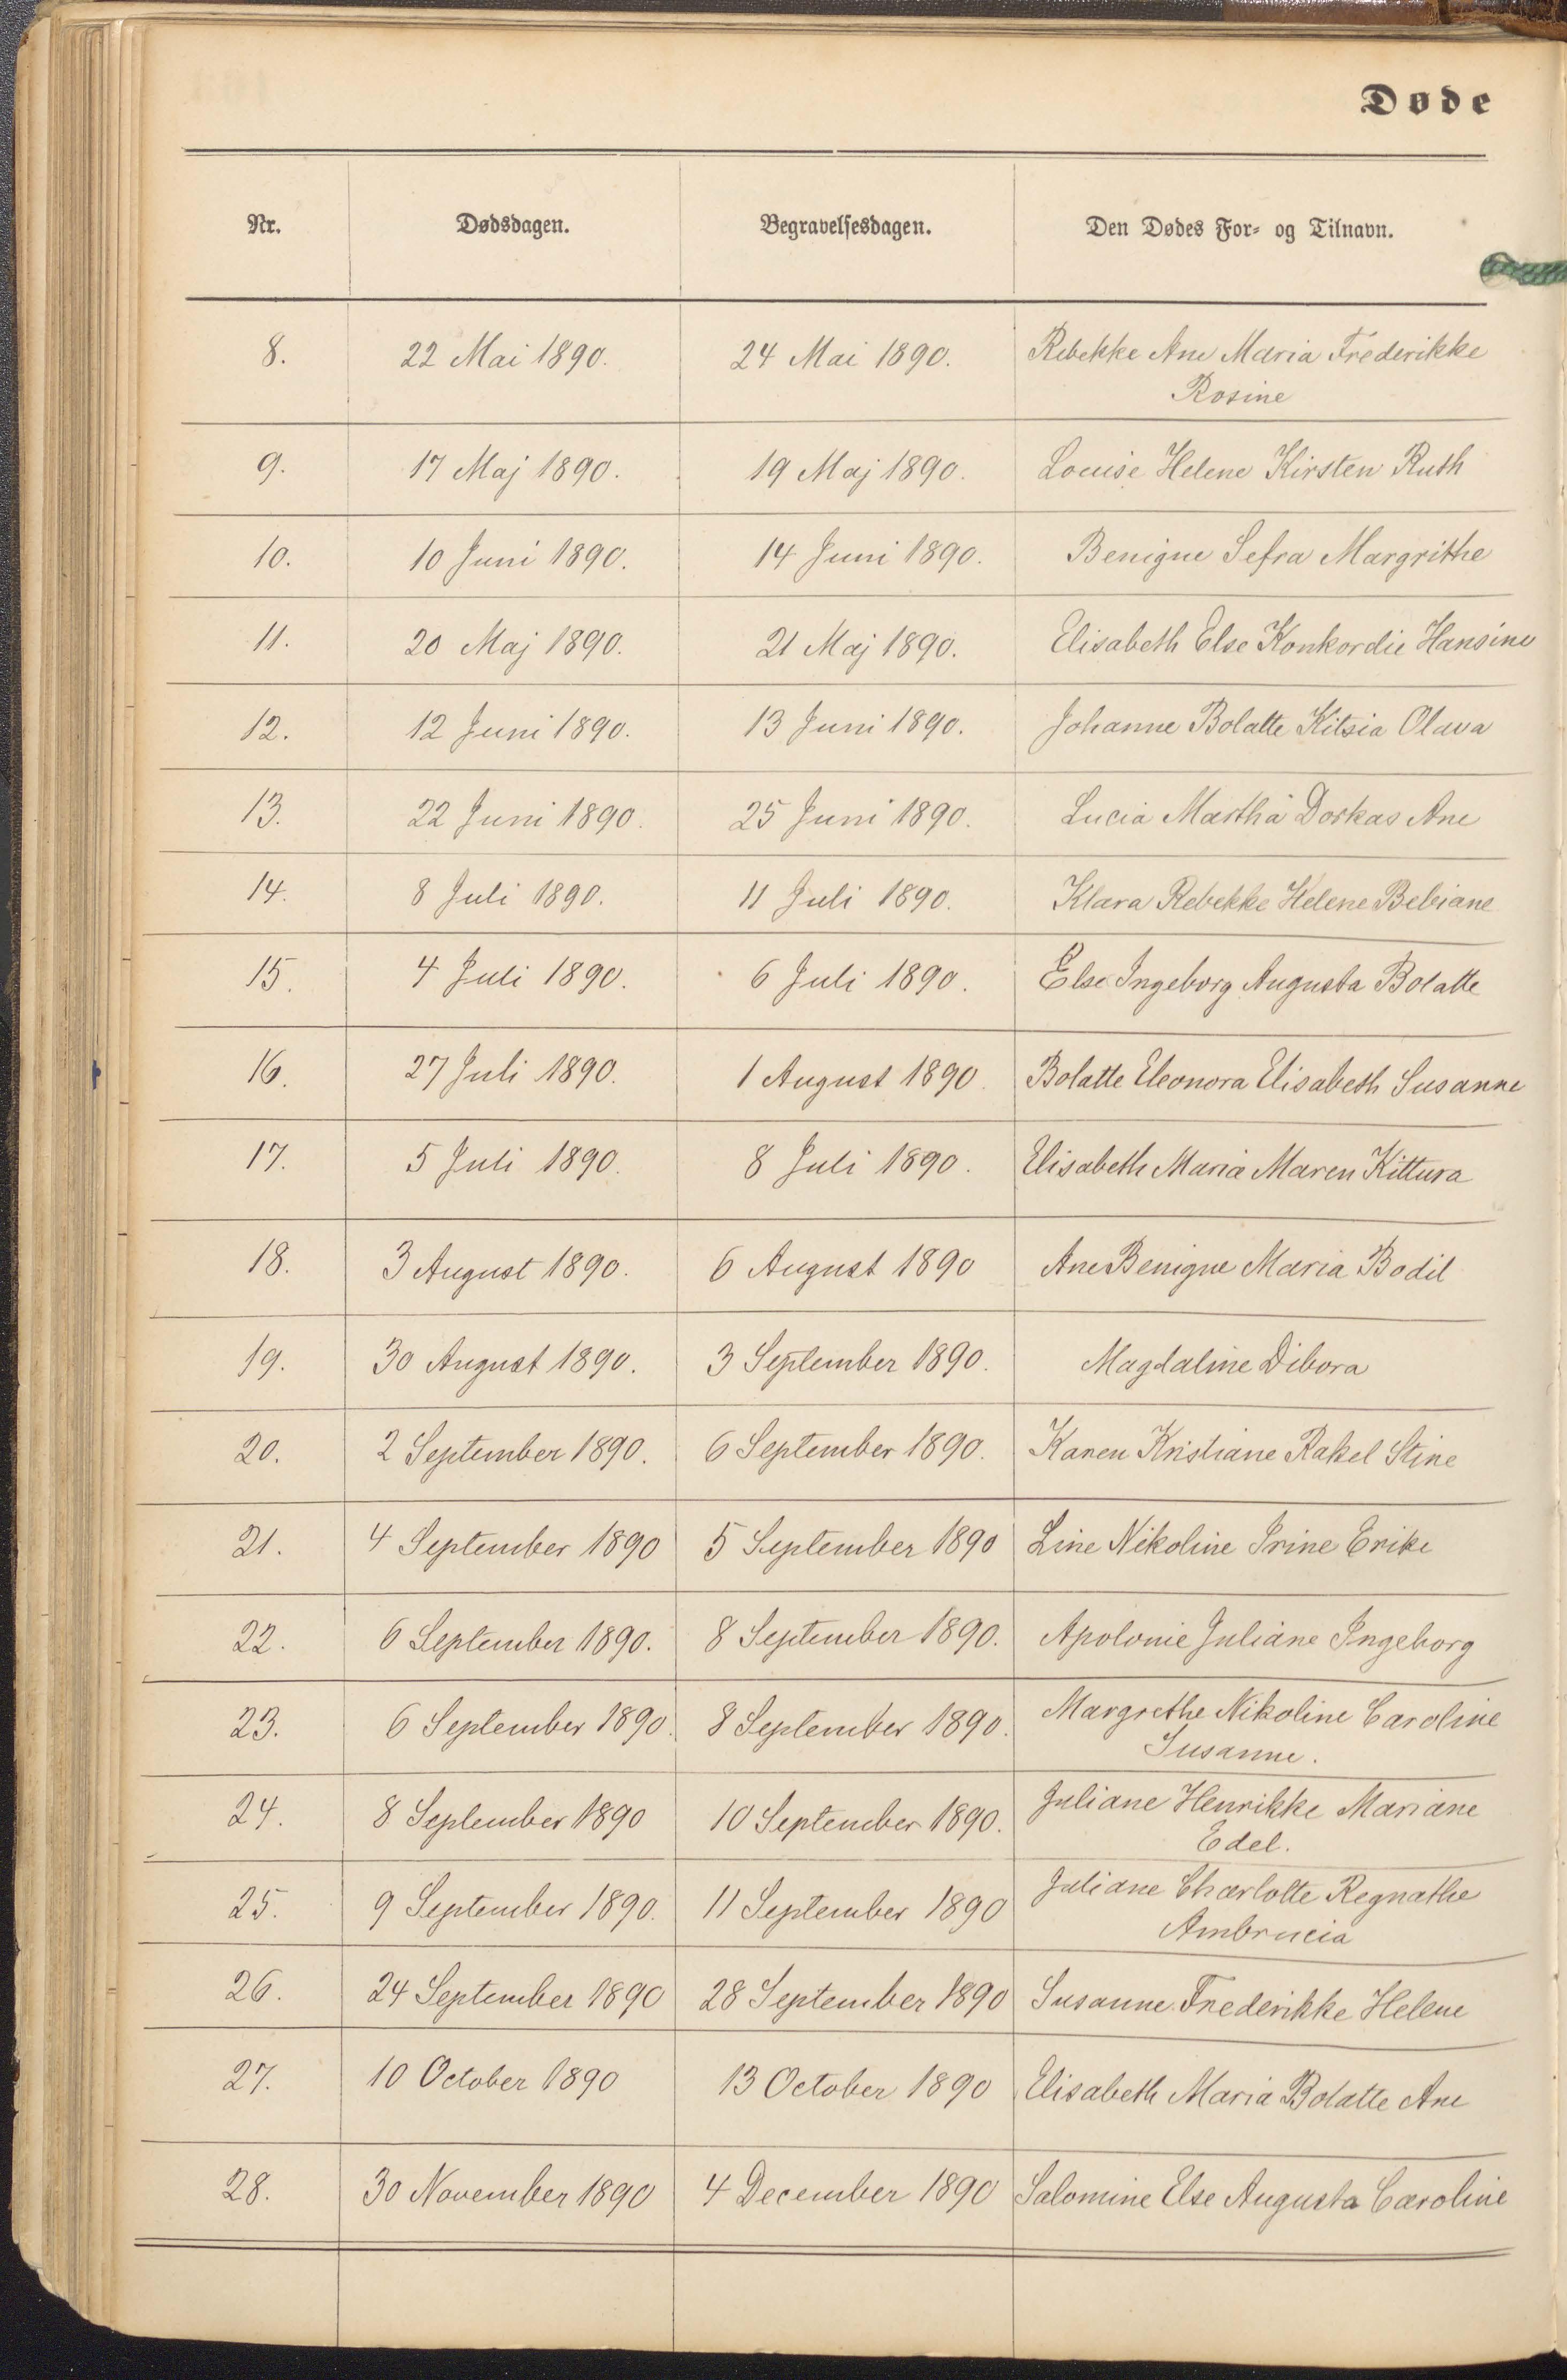 Døde
Nr. Dødsdagen. Begravelsesdagen. Den Dødes For- og Tilnavn.
8. 22 Mai 1890. 24 Mai 1890. Rebekke Ane Maria Frederikke
Rosine
9. 17 Maj 1890. 19 Maj 1890. Louise Helene Kirsten Ruth
10. 10 Juni 1890. 14 Juni 1890. Benigne Sefra Margrithe
11. 20 Maj 1890. 21 Maj 1890. Elisabeth Else Konkordie Hansine
12. 12 Juni 1890. 13 Juni 1890. Johanne Bolatte Kitsia Olava
13. 22 Juni 1890. 25 Juni 1890. Lucia Martha Dorkas Ane
14. 8 Juli 1890. 11 Juli 1890. Klara Rebekke Helene Bebiane
15. 4 Juli 1890. 6 Juli 1890. Else Ingeborg Augusta Bolatte
16. 27 Juli 1890. 1 August 1890. Bolatte Eleonora Elisabeth Susanne
17. 5 Juli 1890. 8 Juli 1890. Elisabeth Maria Maren Kittura
18. 3 August 1890. 6 August 1890 Ane Benigne Maria Bodil
19. 30 August 1890. 3 September 1890. Magdaline Dibora
20. 2 September 1890. 6 September 1890. Karen Kristiane Rakel Stine
21. 4 September 1890 5 September 1890 Line Nikoline Irine Erike
22. 6 September 1890. 8 September 1890. Apolonie Juliane Ingeborg
23. 6 September 1890. 8 September 1890. Margrethe Nikoline Caroline
Susanne.
24. 8 September 1890 10 September 1890. Juliane Henrikke Mariane
Edel.
25. 9 September 1890. 11 September 1890 Juliane Charlotte Regnathe
Ambrucia
26. 24 September 1890 28 September 1890 Susanne Frederikke Helene
27. 10 October 1890 13 October 1890 Elisabeth Maria Bolatte Ane
28. 30 November 1890 4 December 1890 Salomine Else Augusta Caroline